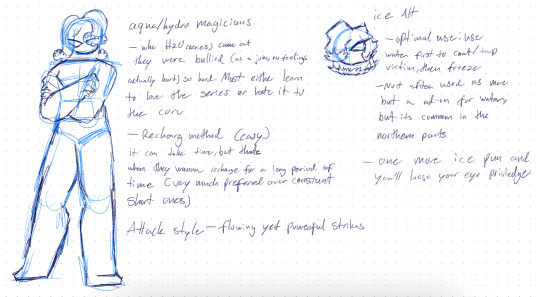 aqua/hydro magicians
- when H2O (series) came out
they were bullied (as a joke, no feelings
actually hurt) so hard. Most either learn
to love the series or hate it to
the core
- Recharg method (easy)
it can take time, but thats
when they wanna recharge for a long period of
time (very much preferred over constant
short ones)
Attack style - flowing yet powerful strikes
ice Alt
- optimal use: use
water first to coat/trap
victim, then freeze
- Not often used as more
but a ad-on for watery
but its common in the
northern parts
- one more ice pun and
you'll lose your eye priviledge